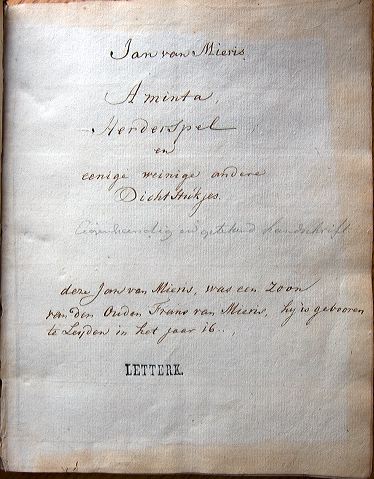 Jan van Mieris
Aminta,
Herderspel
en
eenige weinige andere
Dichtstukjes.
Eigenhandig en getekend handschrift
deze Jan van Mieris, was een Zoon
van den Ouden Frans van Mieris, hij is gebooren
te Leijden in het jaar 16..
LETTERK.